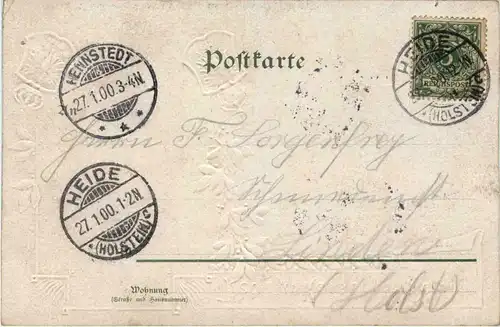 Postkarte
HENNSTEDT
27.1.00.3-4N.
HEIDE
(HOLSTEIN)
REICHSPOST
Herrn F. Sorgenfrey
HEIDE
27.1.00.1-2N.
*(HOLSTEIN)c*
Linden
(Holst)
Wohnung
(Straße und Hausnummer)